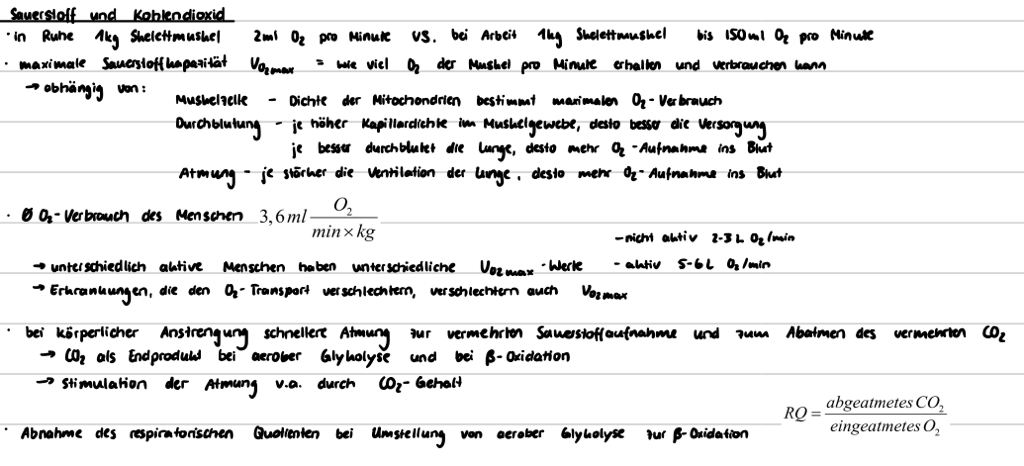 Sauerstoff und Kohlendioxid
· in Ruhe 1kg Skelettmuskel 2ml O₂ pro Minute VS. bei Arbeit 1kg Skelettmuskel bis 150ml O₂ pro Minute
· maximale Sauerstoffkapazität V₀₂max = wie viel O₂ der Muskel pro Minute erhalten und verbrauchen kann
→ abhängig von:
Muskelzelle - Dichte der Mitochondrien bestimmt maximalen O₂-Verbrauch
Durchblutung - je höher Kapillardichte im Muskelgewebe, desto besser die Versorgung
je besser durchblutet die Lunge, desto mehr O₂-Aufnahme ins Blut
Atmung - je stärker die Ventilation der Lunge, desto mehr O₂-Aufnahme ins Blut
· Ø O₂-Verbrauch des Menschen 3,6 ml O₂ / min × kg
- nicht aktiv 2-3 L O₂/min
→ unterschiedlich aktive Menschen haben unterschiedliche V₀₂max-Werte - aktiv 5-6 L O₂/min
→ Erkrankungen, die den O₂-Transport verschlechtern, verschlechtern auch V₀₂max
· bei körperlicher Anstrengung schnellere Atmung zur vermehrten Sauerstoffaufnahme und zum Abatmen des vermehrten CO₂
→ CO₂ als Endprodukt bei aerober Glykolyse und bei β-Oxidation
→ Stimulation der Atmung v.a. durch CO₂-Gehalt
RQ = abgeatmetes CO₂ / eingeatmetes O₂
· Abnahme des respiratorischen Quotienten bei Umstellung von aerober Glykolyse zur β-Oxidation